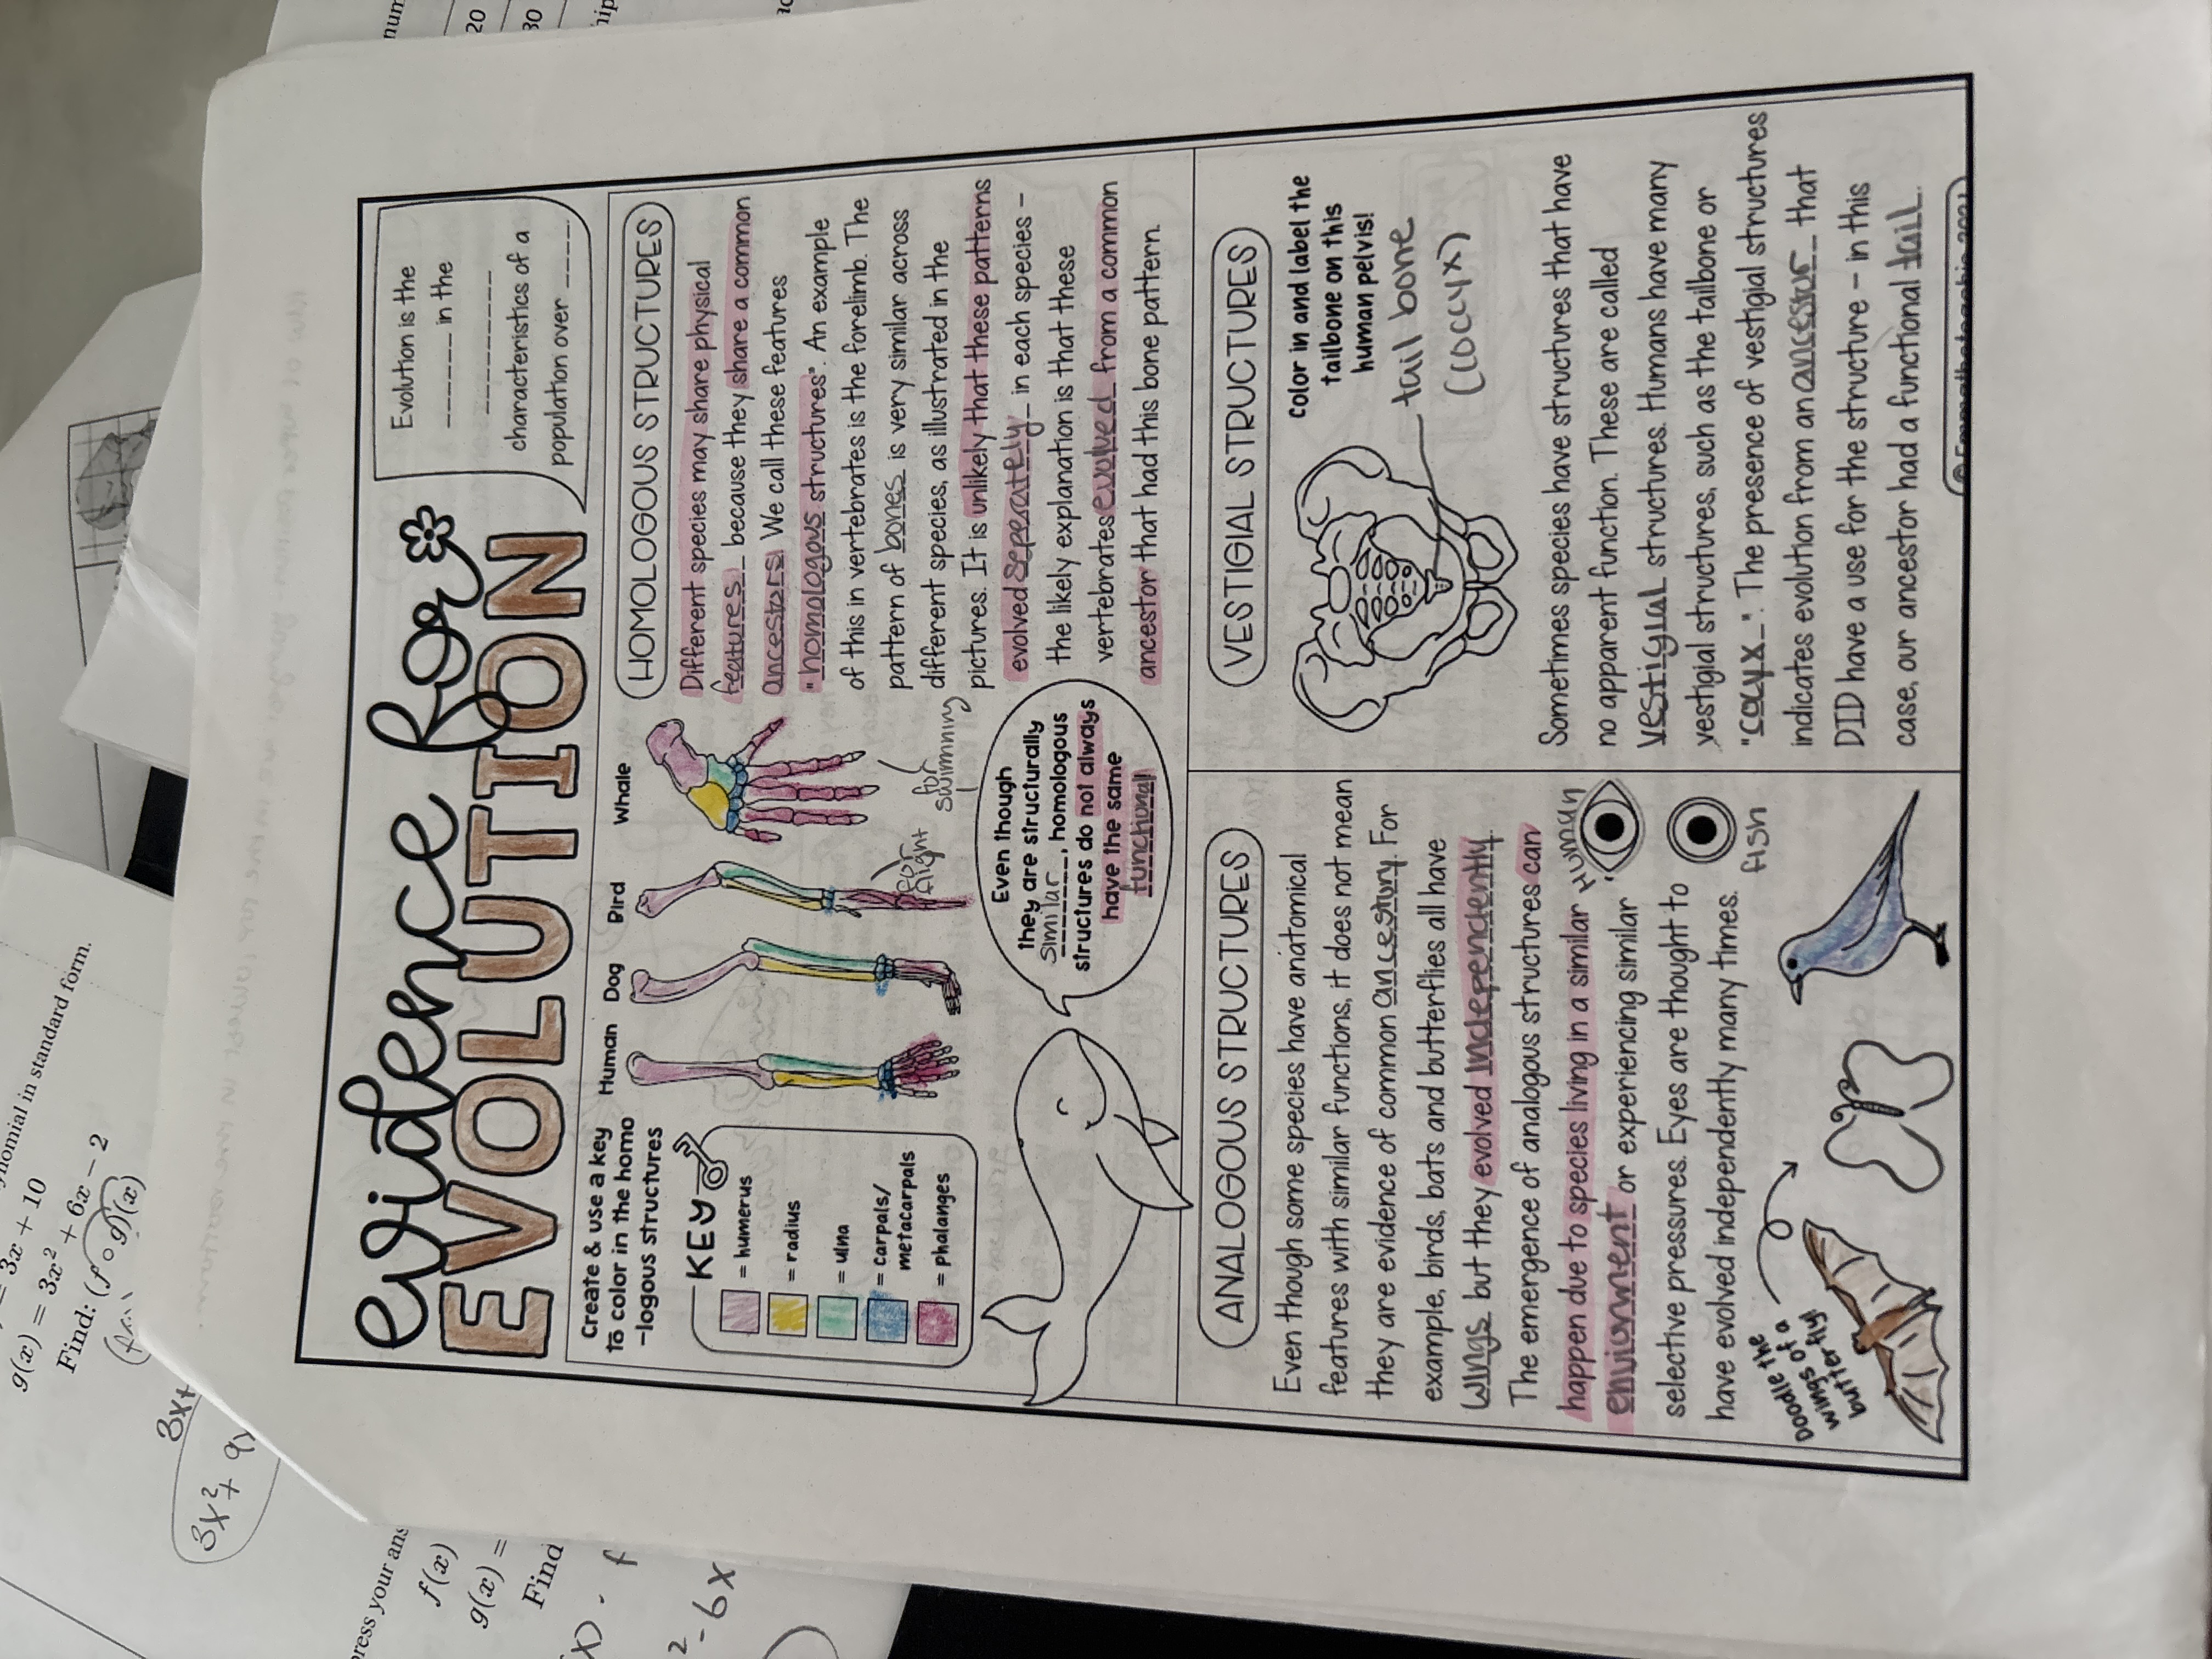 evidence for
EVOLUTION
Evolution is the
______ in the
_________
characteristics of a
population over _____.
Create & use a key
to color in the homo
-logous structures
KEY
= humerus
= radius
= ulna
= carpals/
metacarpals
= phalanges
Human
Dog
Bird
Whale
for
flight
for
swimming
Even though
they are structurally
similar, homologous
structures do not always
have the same
functional!
HOMOLOGOUS STRUCTURES
Different species may share physical
features because they share a common
ancestors. We call these features
"homologous structures". An example
of this in vertebrates is the forelimb. The
pattern of bones is very similar across
different species, as illustrated in the
pictures. It is unlikely that these patterns
evolved seperately in each species -
the likely explanation is that these
vertebrates evolved from a common
ancestor that had this bone pattern.
ANALOGOUS STRUCTURES
Even though some species have anatomical
features with similar functions, it does not mean
they are evidence of common ancestory. For
example, birds, bats and butterflies all have
wings but they evolved independently.
The emergence of analogous structures can
happen due to species living in a similar
enviornment or experiencing similar
selective pressures. Eyes are thought to
have evolved independently many times.
Human
fish
Doodle the
wings of a
butterfly!
VESTIGIAL STRUCTURES
Color in and label the
tailbone on this
human pelvis!
tail bone
(coccyx)
Sometimes species have structures that have
no apparent function. These are called
vestigial structures. Humans have many
vestigial structures, such as the tailbone or
"cocyx". The presence of vestigial structures
indicates evolution from an ancestor that
DID have a use for the structure - in this
case, our ancestor had a functional tail.
nomial in standard form.
= 3x + 10
g(x) = 3x² + 6x − 2
Find: (f ∘ g)(x)
3x+
3x² + 9x
press your ans
f(x)
g(x) =
Find
² - 6x
num
20
30
hip